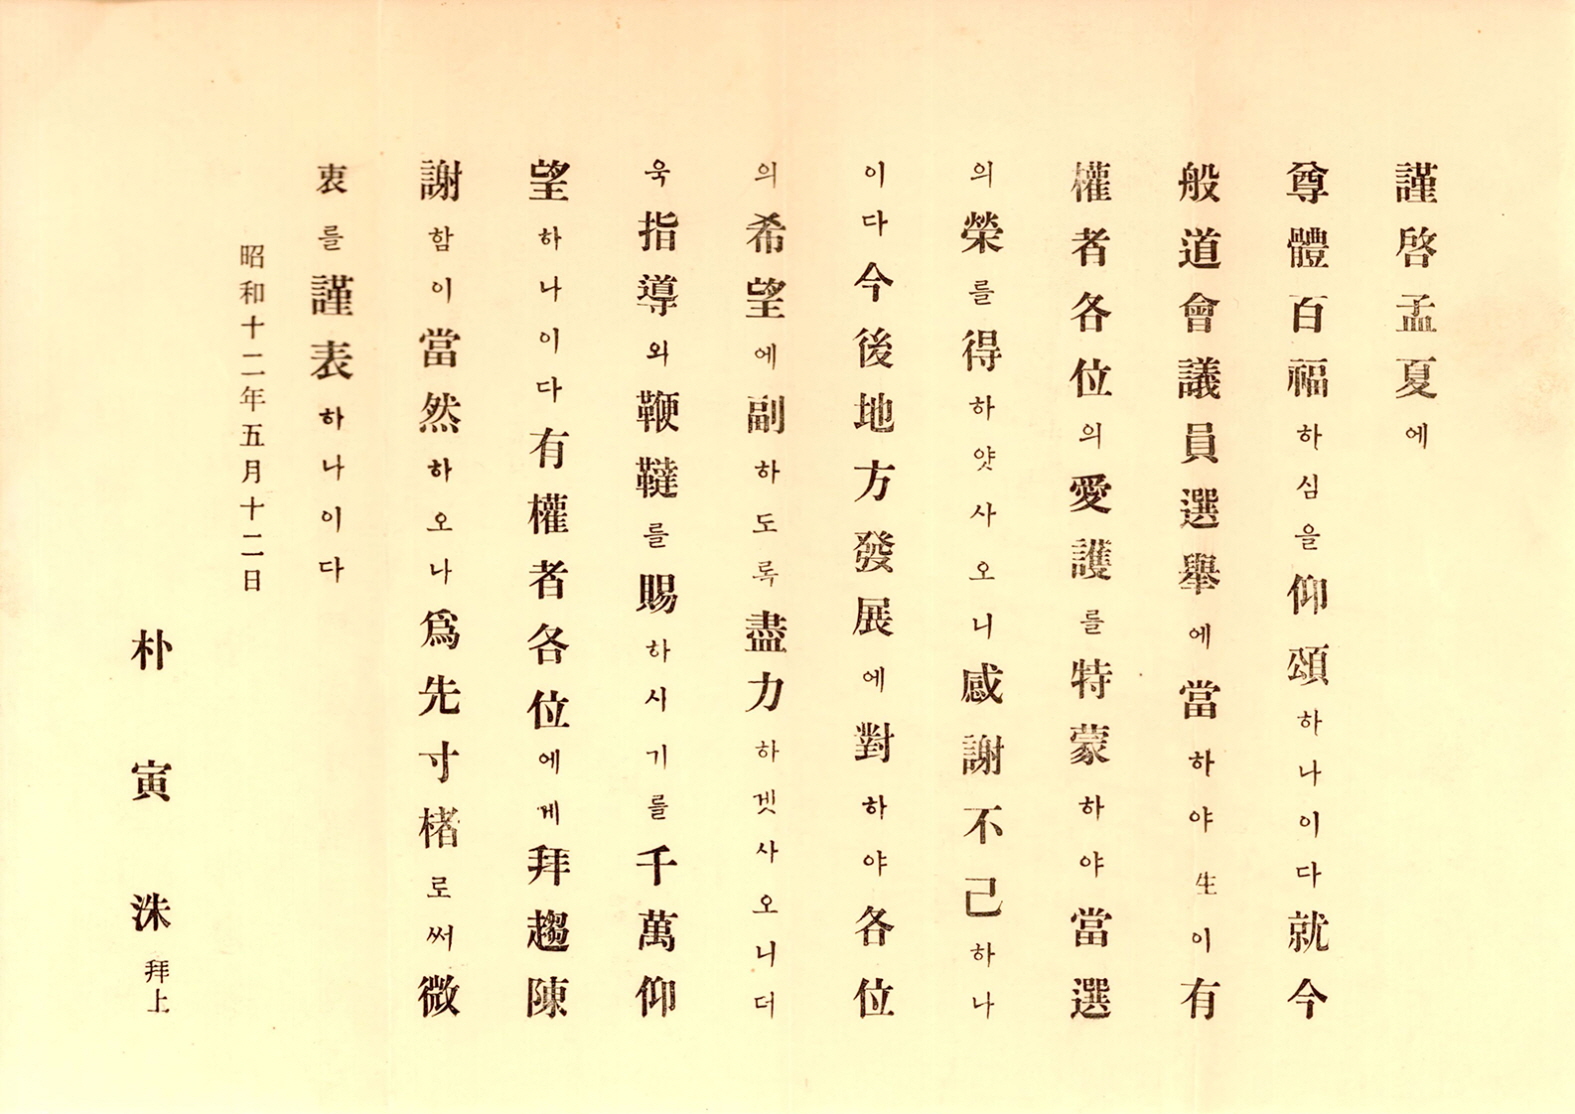 謹啓孟夏에
尊體百福하심을仰頌하나이다就今
般道會議員選擧에當하야生이有
權者各位의愛護를特蒙하야當選
의榮를得하얏사오니感謝不己하나
이다今後地方發展에對하야各位
의希望에副하도록盡力하겟사오니더
욱指導와鞭韃를賜하시기를千萬仰
望하나이다有權者各位에게拜趨陳
謝함이當然하오나爲先寸楮로써微
衷를謹表하나이다
昭和十二年五月十二日
朴寅洙拜上